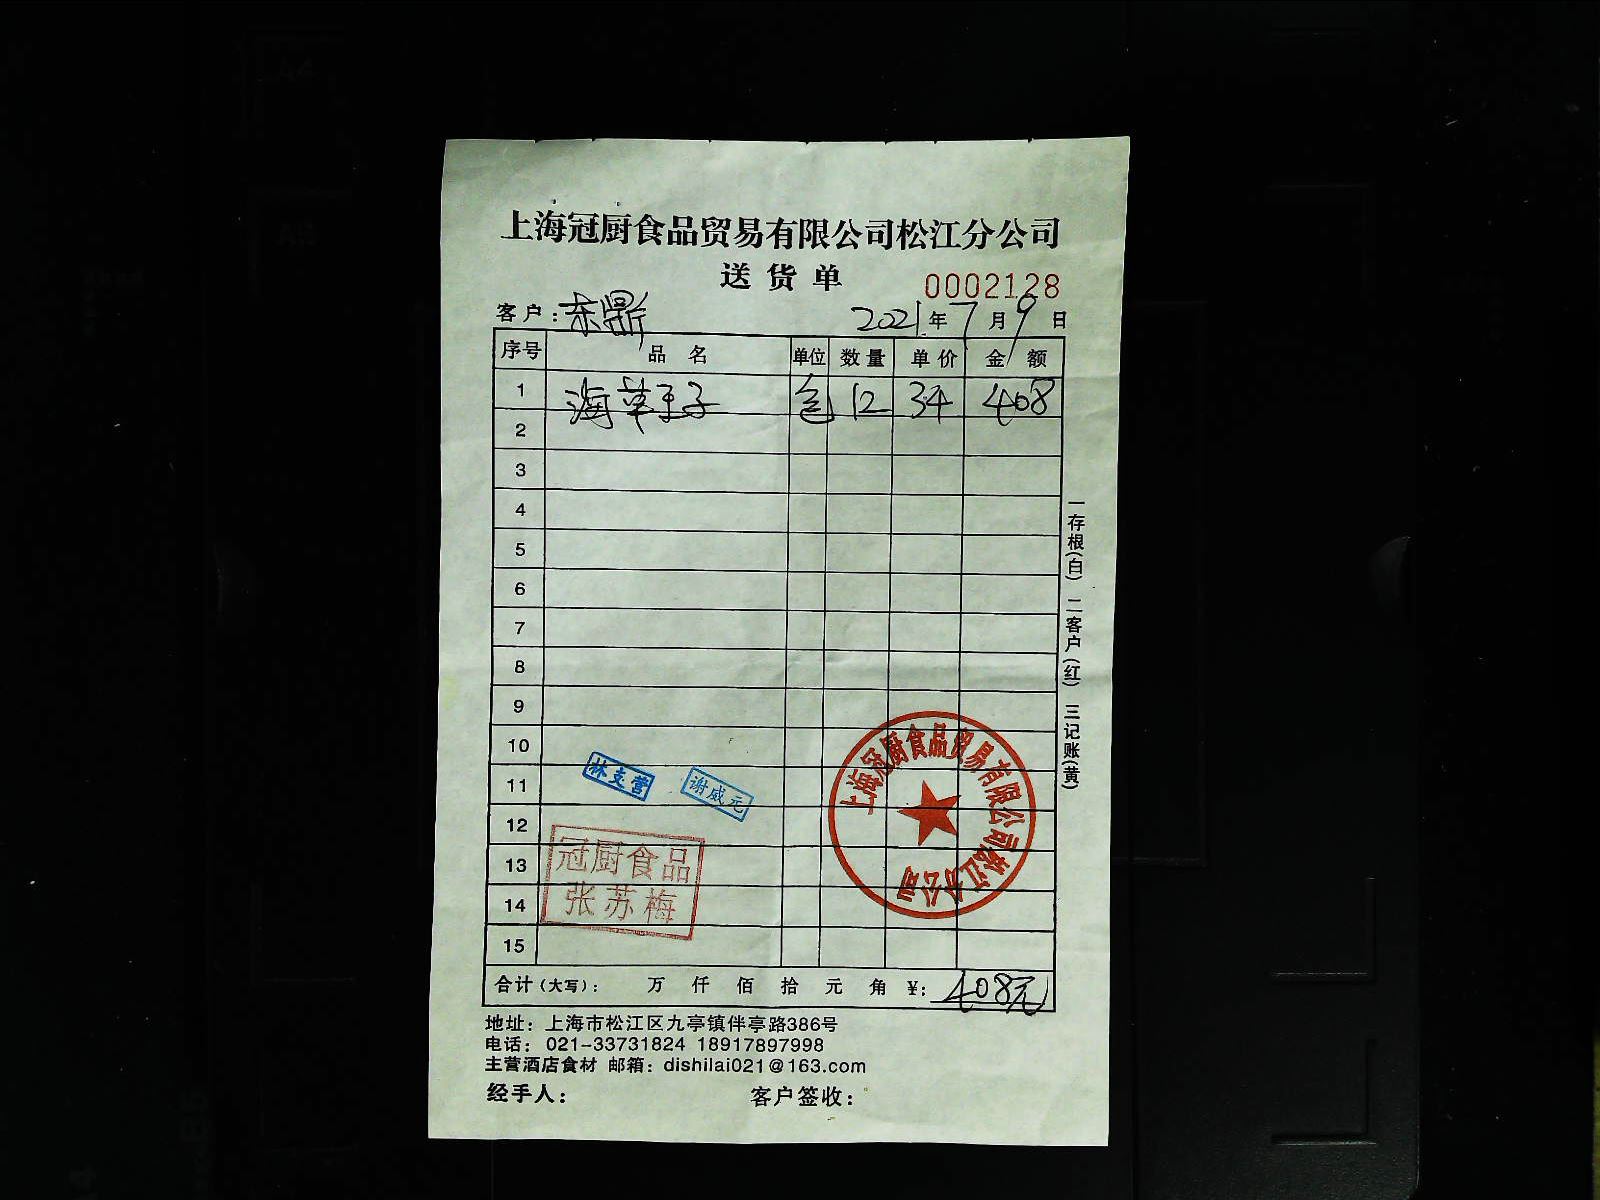 上海冠厨食品贸易有限公司松江分公司
送货单 0002128
客户：东鼎 2021年7月9日
序号 品名 单位 数量 单价 金额
1 海草王子 包 12 34 408
2
3
4
5
6
7
8
9
10
11
12
13
14
15
林支营
谢威元
冠厨食品
张苏梅
上海冠厨食品贸易有限公司松江分公司
合计(大写)： 万 仟 佰 拾 元 角 ¥：408元
一存根(白) 二客户(红) 三记账(黄)
地址：上海市松江区九亭镇伴亭路386号
电话：021-33731824 18917897998
主营酒店食材 邮箱：dishilai021@163.com
经手人： 客户签收：